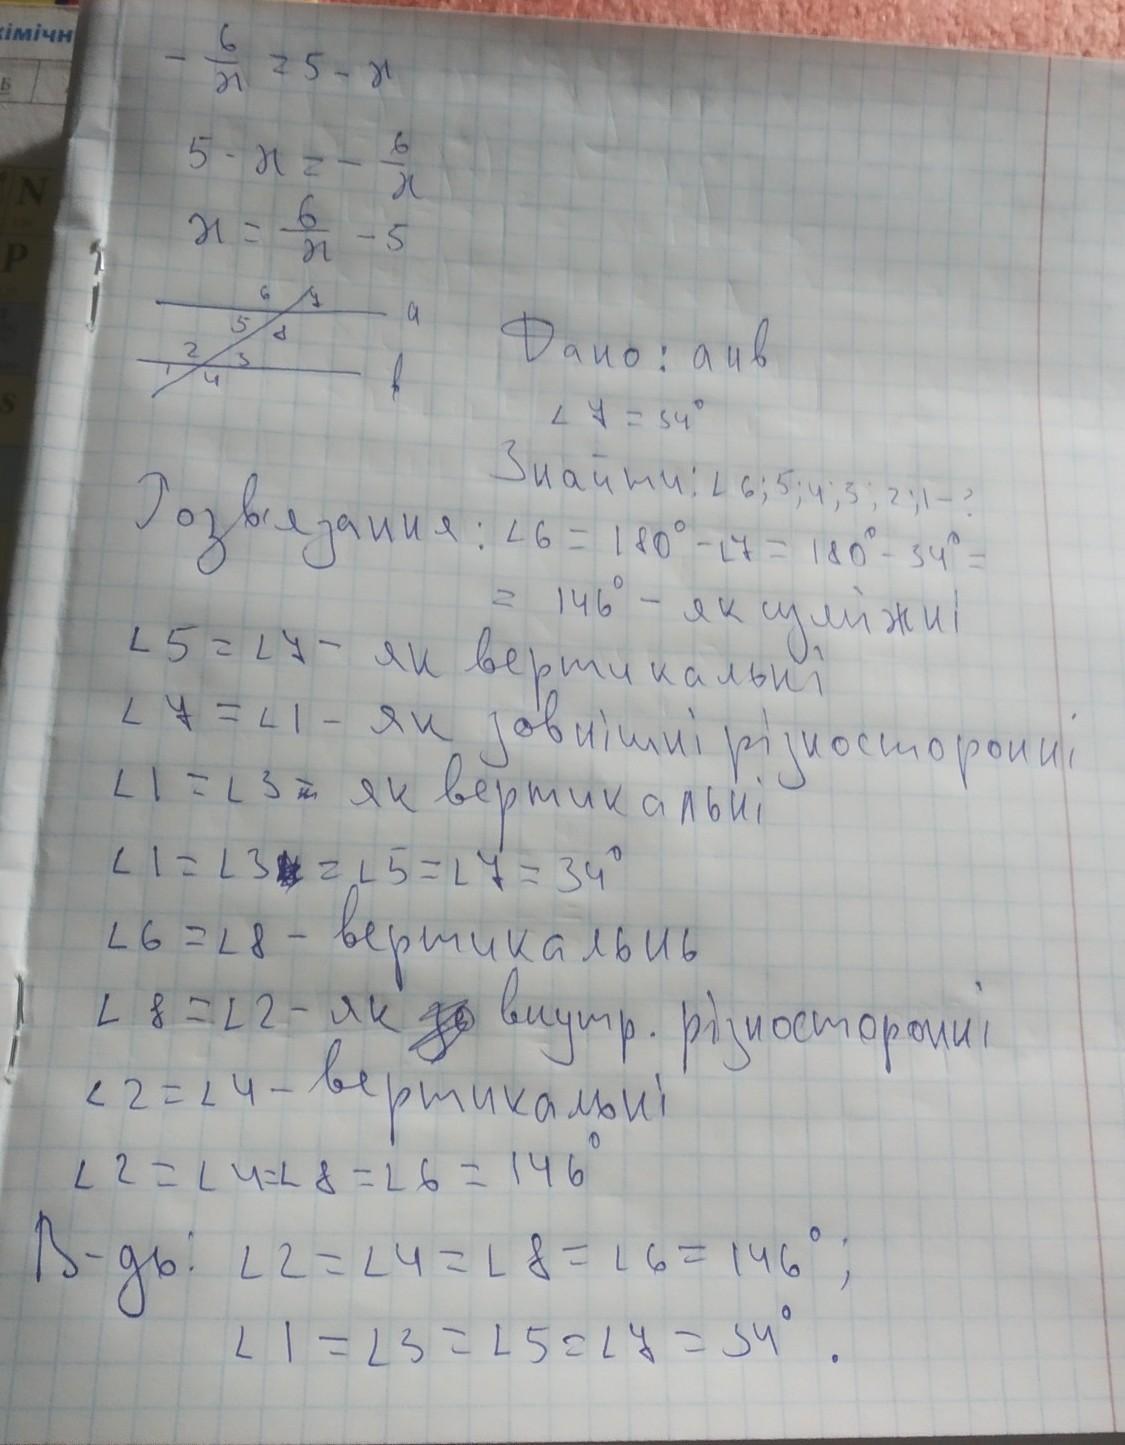 імічн
Б
N
P
S
- 6/x = 5 - x
5 - x = - 6/x
x = 6/x - 5
6 7
a
5 8
2 3
1 4
b
Дано: aıı b
∠7 = 34°
Знайти: ∠6; 5; 4; 3; 2; 1 - ?
Розв'язання: ∠6 = 180° - ∠7 = 180° - 34° =
= 146° - як суміжні
∠5 = ∠7 - як вертикальні
∠7 = ∠1 - як зовнішні різносторонні
∠1 = ∠3 - як вертикальні
∠1 = ∠3 = ∠5 = ∠7 = 34°
∠6 = ∠8 - вертикальнь
∠8 = ∠2 - як внутр. різносторонні
∠2 = ∠4 - вертикальні
∠2 = ∠4 = ∠8 = ∠6 = 146°
В-дь: ∠2 = ∠4 = ∠8 = ∠6 = 146°;
∠1 = ∠3 = ∠5 = ∠7 = 34°.